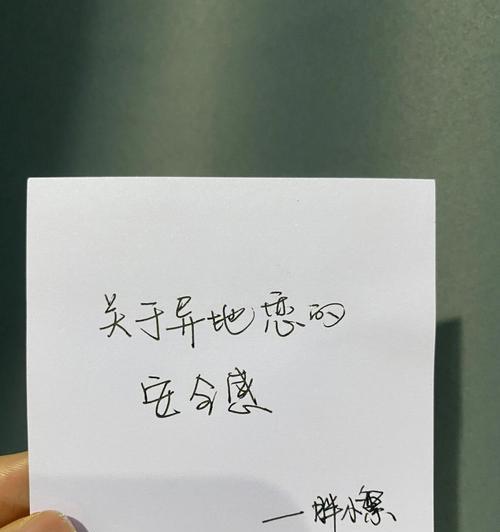 关于异地恋的
安全感
一胖小